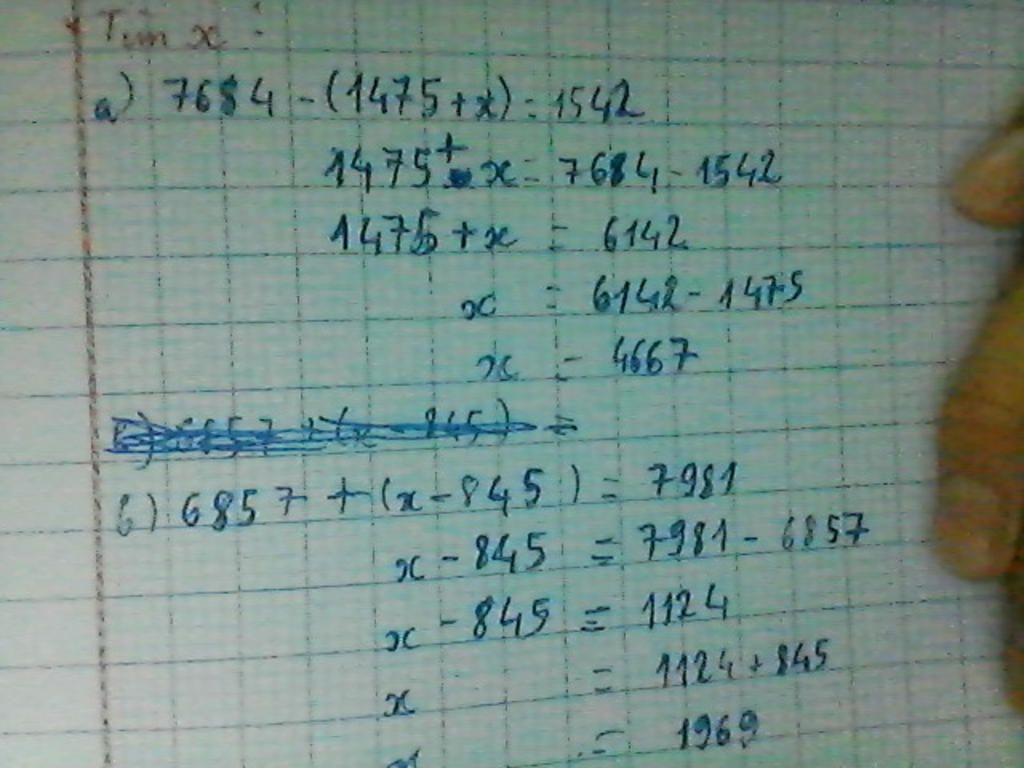 Tìm x :
a) 7684 - (1475 + x) = 1542
1475 + x = 7684 - 1542
1475 + x = 6142
x = 6142 - 1475
x = 4667
b) 6857 + (x - 845) = 7981
x - 845 = 7981 - 6857
x - 845 = 1124
x = 1124 + 845
x = 1969